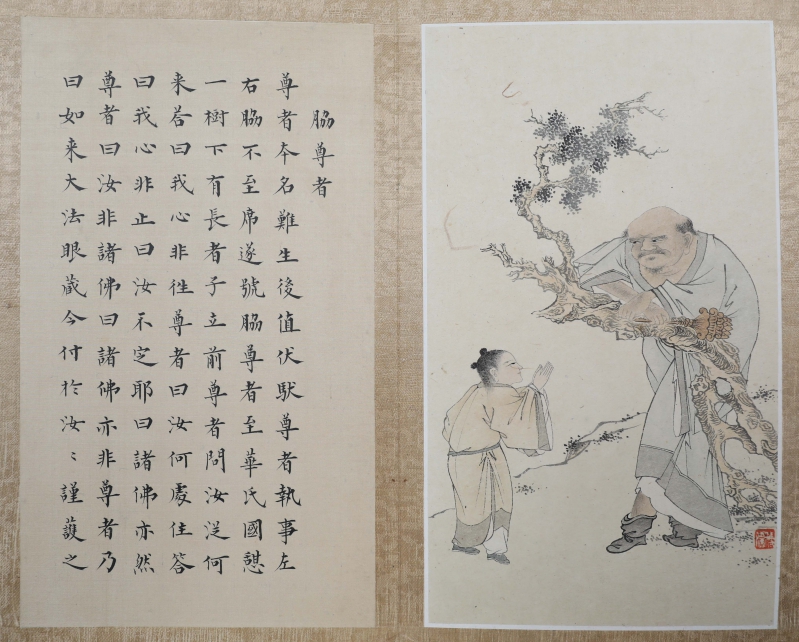 脇尊者
尊者夲名難生後值伏馱尊者執事左
右脇不至席遂號脇尊者至華氏國憇
一樹下有長者子立前尊者問汝從何
来荅曰我心非徃尊者曰汝何處住答
曰我心非止曰汝不定耶曰諸佛亦然
尊者曰汝非諸佛曰諸佛亦非尊者乃
曰如来大法眼蔵今付於汝〻謹護之